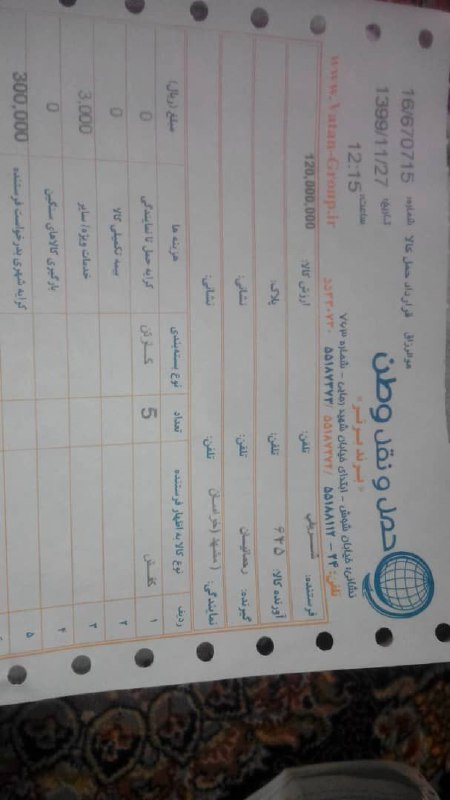 هوالرزاق
قرارداد حمل کالا
شماره: 16/670715
تاریخ: 1399/11/27
ساعت: 12:15
حمل و نقل وطن
« برند برتر »
نشانی: خیابان شوش - ابتدای خیابان شهید رجایی - شماره ۷۶۳
تلفن: ۲۴ - ۵۵۱۸۸۱۱۲ / ۵۵۱۸۷۲۷۲ / ۵۵۱۸۷۳۷۳
www.Vatan-Group.ir
فرستنده: شریفی تلفن: ارزش کالا: 120,000,000
آورنده کالا: ۶۴۵ تلفن: پلاک:
گیرنده: رحمانیان تلفن: نشانی:
نمایندگی: (مشهد (خراسان تلفن: نشانی:
ردیف نوع کالا به اظهار فرستنده تعداد نوع بسته‌بندی هزینه ها مبلغ (ریال)
۱ کفش 5 کارتن کرایه حمل تا نمایندگی 0
۲ بیمه تکمیلی کالا 0
۳ خدمات ویژه/سایر 3,000
۴ بارگیری کالاهای سنگین 0
۵ کرایه شهری بدرخواست فرستنده 300,000